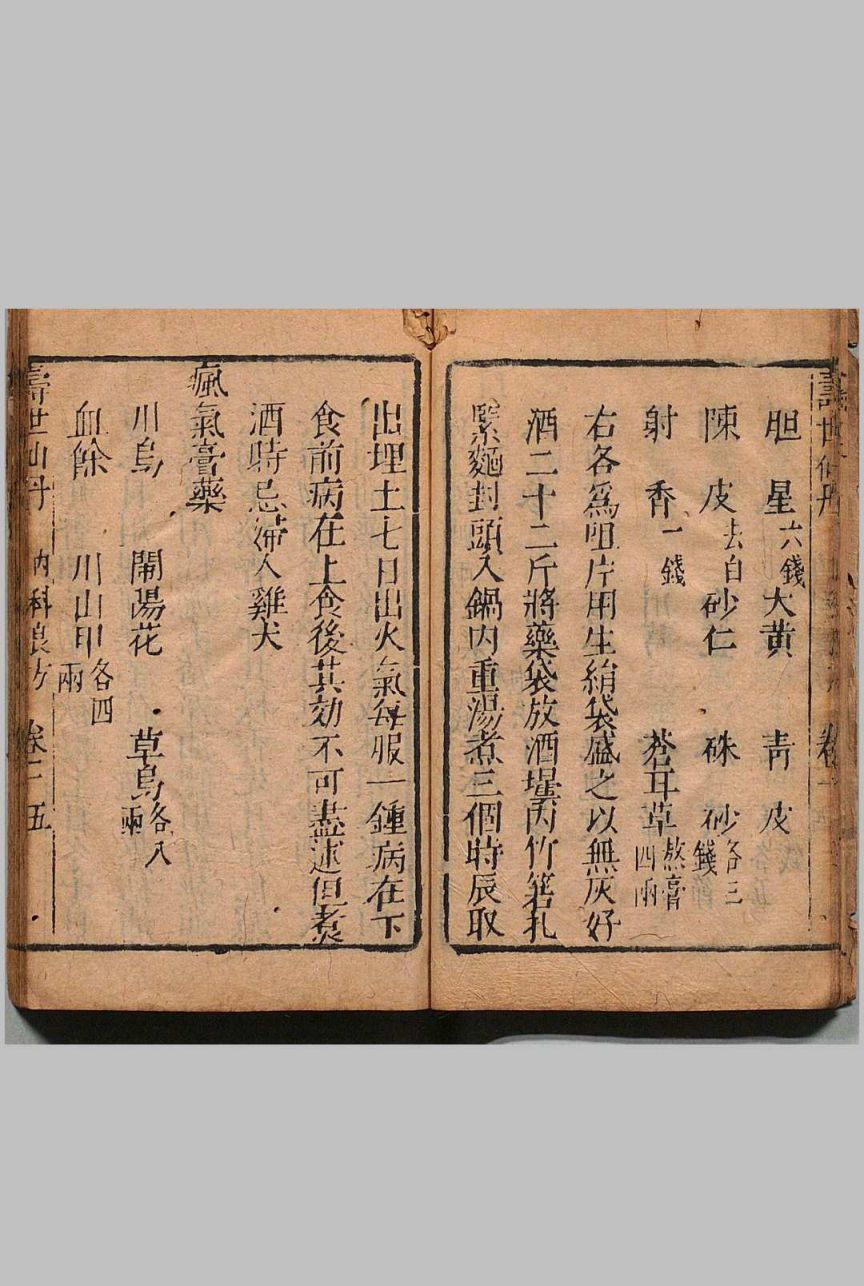 胆星六錢大黃 青皮
陳皮去白砂仁 硃砂各三錢
射香一錢 蒼耳草熬膏四兩
右各為咀片用生絹袋盛之以無灰好
酒二十二斤將藥袋放酒墰內竹箬扎
緊麵封頭入鍋內重湯煮三個時辰取
出埋土七日出火氣每服一鍾病在下
食前病在上食後其効不可盡述但煮
酒時忌婦人雞犬
瘋氣膏藥
川烏 鬧陽花 草烏各八兩
血餘 川山甲各四兩
壽世仙丹 內科良方 卷二 五